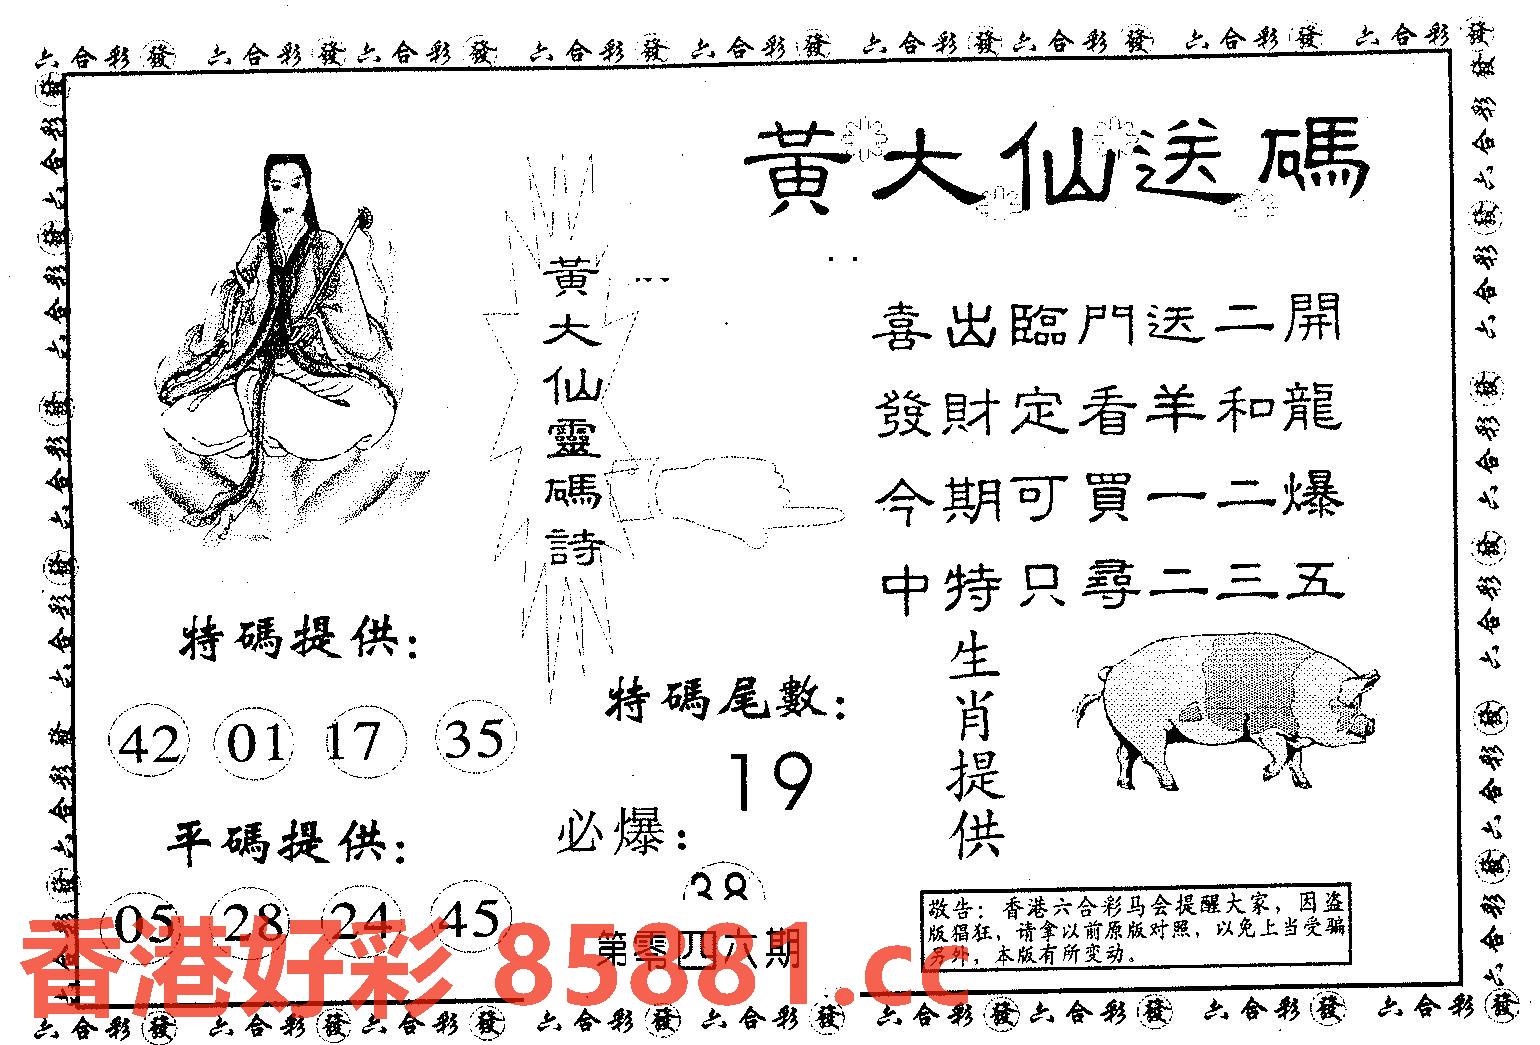 六合彩發 六合彩發 六合彩發 六合彩發 六合彩發 六合彩發 六合彩發 六合彩發 六合彩發
黃大仙送碼
黃大仙靈碼詩
喜出臨門送二開
發財定看羊和龍
今期可買一二爆
中特只尋二三五
特碼提供：
42 01 17 35
平碼提供：
05 28 24 45
特碼尾數：
19
必爆：
38
第零四六期
生肖提供
敬告：香港六合彩马会提醒大家，因盗
版猖狂，请拿以前原版对照，以免上当受骗
另外，本版有所变动。
香港好彩 85881.cc
六合彩發 六合彩發 六合彩發 六合彩發 六合彩發 六合彩發 六合彩發 六合彩發 六合彩發